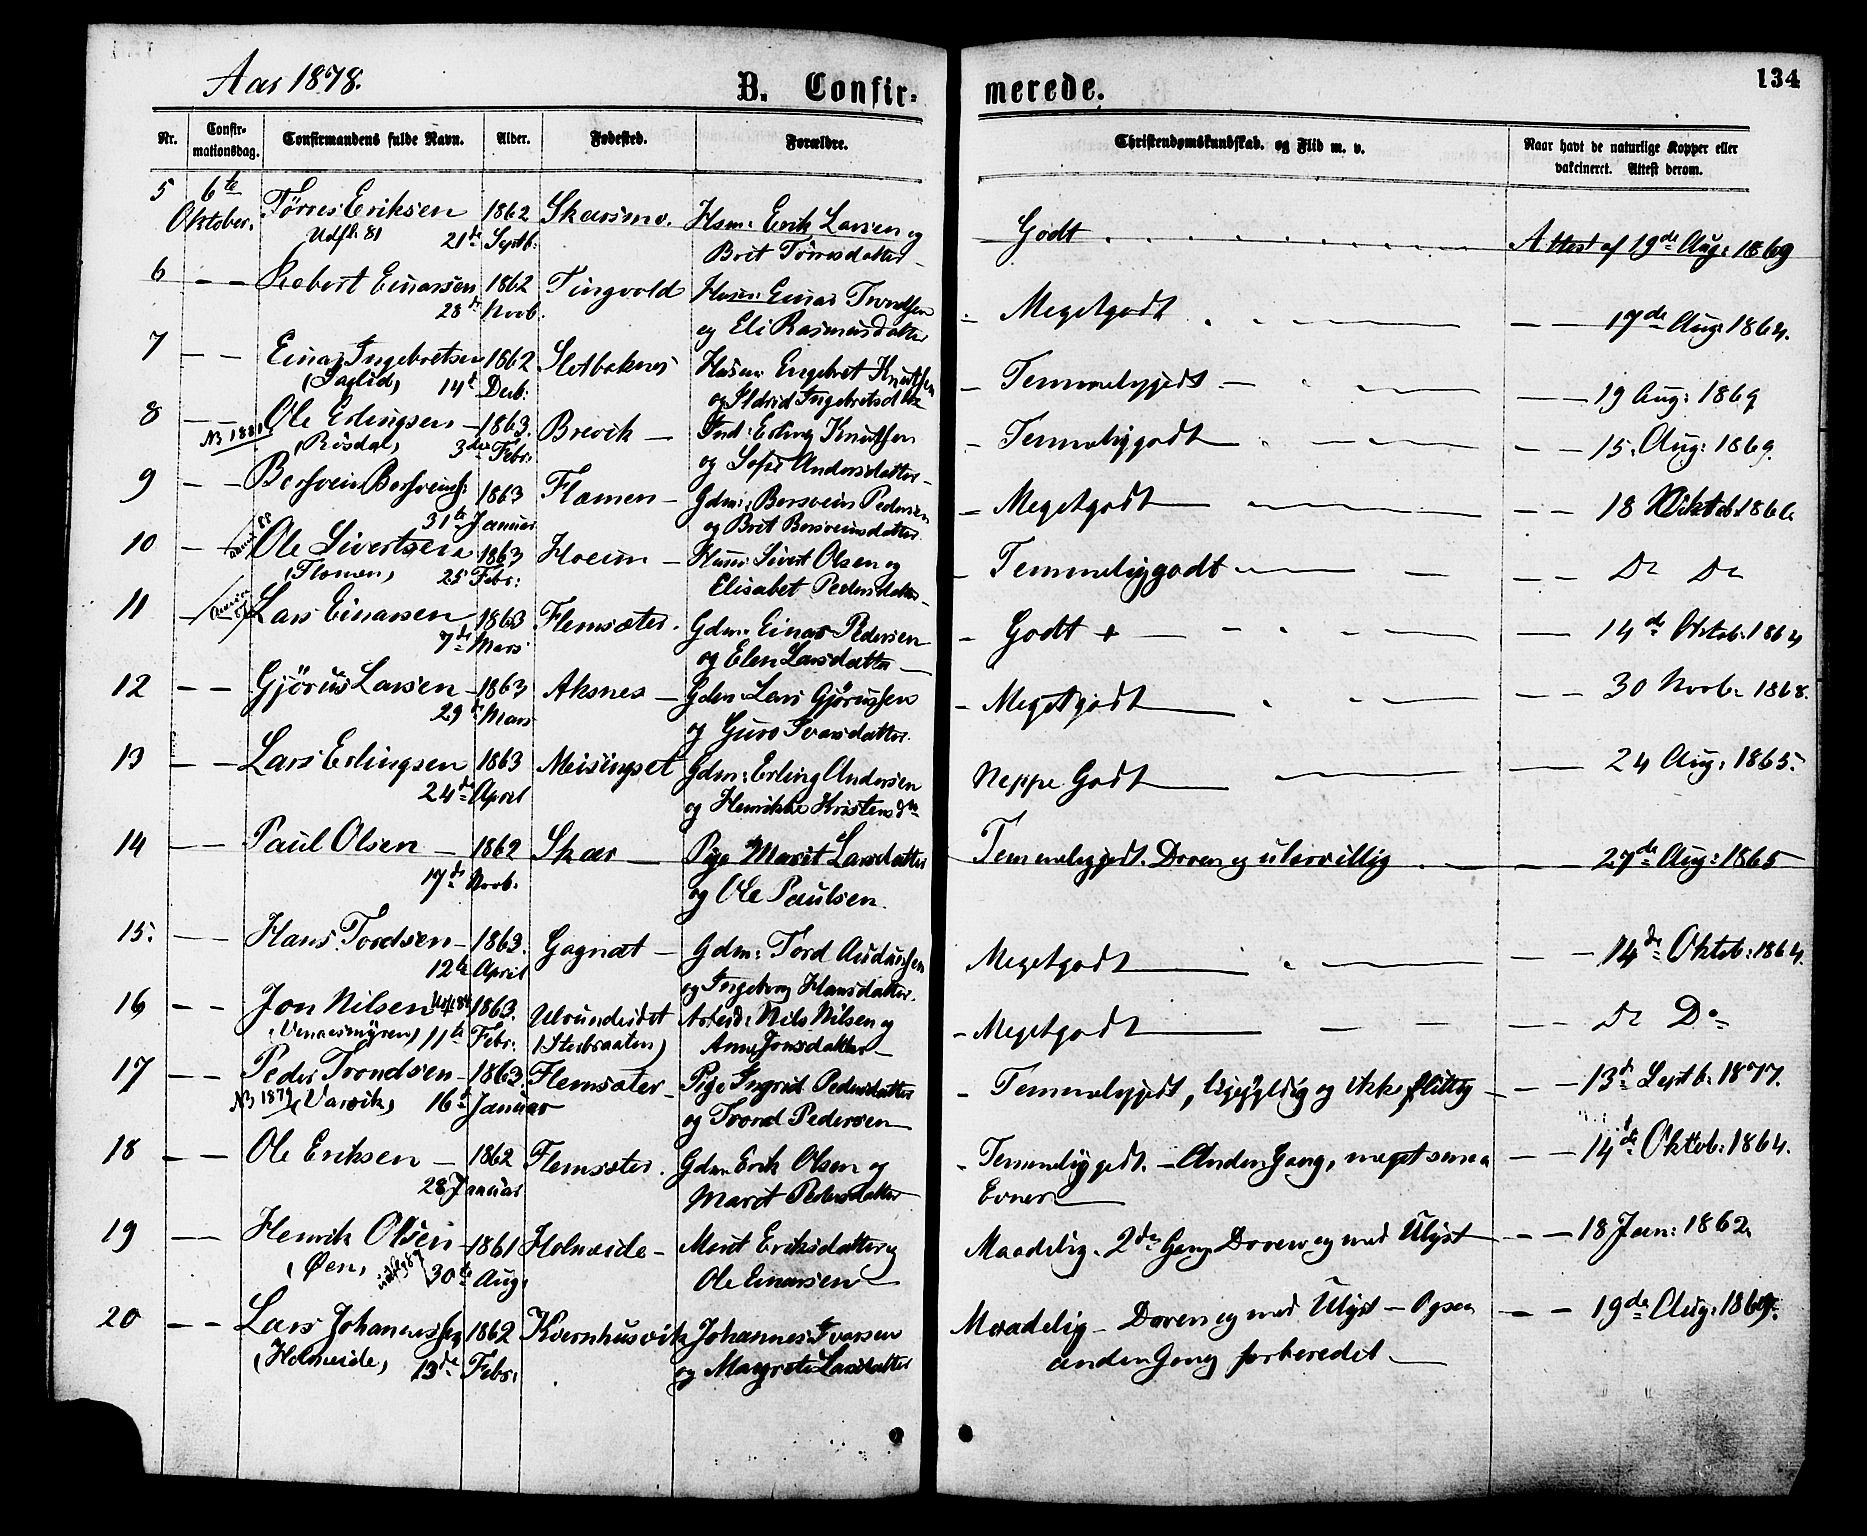 Aar 1878.
B. Confir-
merede.
134
Nr.
Confir-
mationsdag.
Confirmandens fulde Navn.
Alder.
Fødested.
Forældre.
Christendomskundskab. og Flid m. v.
Naar havt de naturlige Kopper eller
vakcineret. Attest derom.
5 6te Tørres Eriksen 1862 Skarsmo. Husm: Erik Larsen og Godt Attest af 19de Aug: 1869
Oktober. Udfl. 81 21de Septb: Brit Tørresdatter
6 — — Einarsen 1862 Tingvold Husm: Einar Trondsen Megetgodt — — 17de Aug: 1864.
28de Novb. og Eli Rasmusdatter
7 — — Einar Ingebretsen 1862 Husm: Engebret Knutsen Temmeliggodt — — 19 Aug: 1869
14de Decb: og Ildrid Ingebretsdtr
8 — Ole Erlingsen — 1863. Brevik — Ind: Erling Knutsen Temmeliggodt — — 15. Aug: 1869.
(Røsdal) 3die Febr: og Sofie Andersdatter
9 — — Bersvein Bersveins: 1863 Flamen — Gdm: Bersvein Pedersen Megetgodt — — 18
31te Januar og Brit Bersveinsdatter
10 — — Ole Sivertsen 1863 Hoeim — Husm: Sivert Olsen og Temmeliggodt — — Do Do
(Flamen) 25 Febr: Elisabet Pedersdatter
11 — Lars Einarsen 1863 Flemsæter. Gdm: Einar Pedersen Godt + — 14de Oktob: 1864
7de Mars og Elen Larsdatter
12 — — Gjørus Larsen — 1863 Aksnes — Gdm: Lars Gjørussen Megetgodt — — 30 Novb. 1868.
29de Mars og Guro Ivarsdatter.
13 — — Lars Erlingsen 1863 Meisingset Gdm: Erling Andersen Neppe Godt — 24 Aug: 1865.
24de April og Henrikke Kristensdtr
14 — — Paul Olsen — 1862 Skar — Pige Marit Larsdatter Temmeliggodt. Doven og ulærvillig — 27de Aug: 1865
17de Novb. og Ole Paulsen.
15. — — Hans Tordsen — 1863. Gagnat — Gdm: Tord Audunsen Megetgodt — — 14de Oktob: 1864.
12te April og Ingeborg Hansdatter.
16 — — Jon Nilsen 1863. Ulvundeidet Arbeid: Nils Nilsen og Megetgodt — — Do Do
11te Febr: (Steibraaten) Anne Jonsdatter
17 — — Peder Trondsen — 1863. Flemsæter — Pige Ingrid Pedersdatter Temmeliggodt, ligegyldig og ikke flittig — — 13de Septb: 1877.
N3 1879 (Varvik) 16de Januar og Trond Pedersen
18 — — Ole Eriksen — 1862 Flemsæter. Gdm: Erik Olsen og Temmeliggodt. — Anden Gang, meget smaa — — 14de Oktob: 1864.
28 Januar Marit Pedersdatter Evner
19 — — Henrik Olsen — 1861 Holmeide — Marit Eriksdatter og Maadelig. 2den Gang. Doven og med Ulyst — — 18 Jan: 1862.
(Øen) 30te Aug. Ole Einarsen
20 — — Lars Johannessen 1862 Kvernhusvik Johannes Ivarsen Maadelig — Doven og med Ulyst — Ogsaa — — 19de Aug: 1869.
(Holmeide) 13de Febr: og Margrete Larsdatter anden Gang forberedet